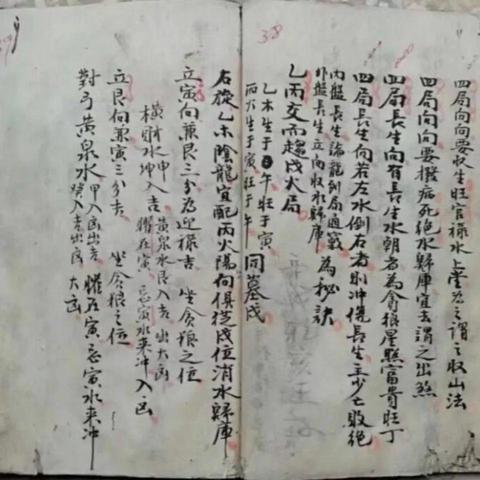 38
四局向向要收生旺官祿水上堂為之謂之收山法
四局向向要撥病死绝水歸庫宜去謂之出煞
四局長生向有長生水朝者為貪狼星照富貴旺丁
四局長生向若左水倒右者則冲傷長生主少亡敗絶
內盤長生論龍到局通竅
外盤長生立向收水歸庫
為秘訣
乙丙交而趨戌火局
乙木生于午旺于寅
丙火生于寅旺于午
同墓戌
右旋乙木陰龍宜配丙火陽向俱從戌位消水歸庫
立寅向兼艮三分為迎祿吉
坐貪狼之位
橫財水坤入吉
黃泉水艮入吉出大凶
曜在寅忌寅水来冲入凶
立艮向兼寅三分吉
坐貪狼之位
對弓黃泉水
甲入凶出吉
癸入吉出凶
曜在寅忌寅水来冲
大凶